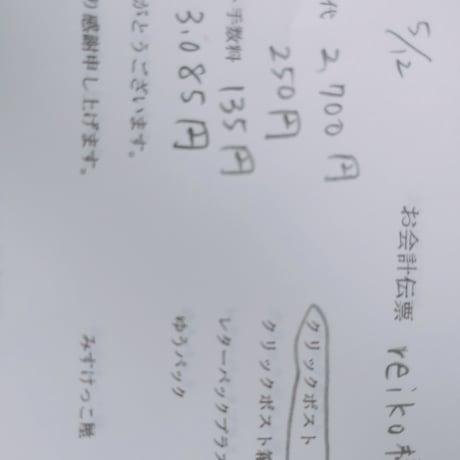 5/12 お会計伝票 reiko
代 2,700円 クリックポスト
250円 クリックポスト箱
手数料 135円 レターパックプラス
3,085円 ゆうパック
がとうございます。
り感謝申し上げます。 みすけっこ屋